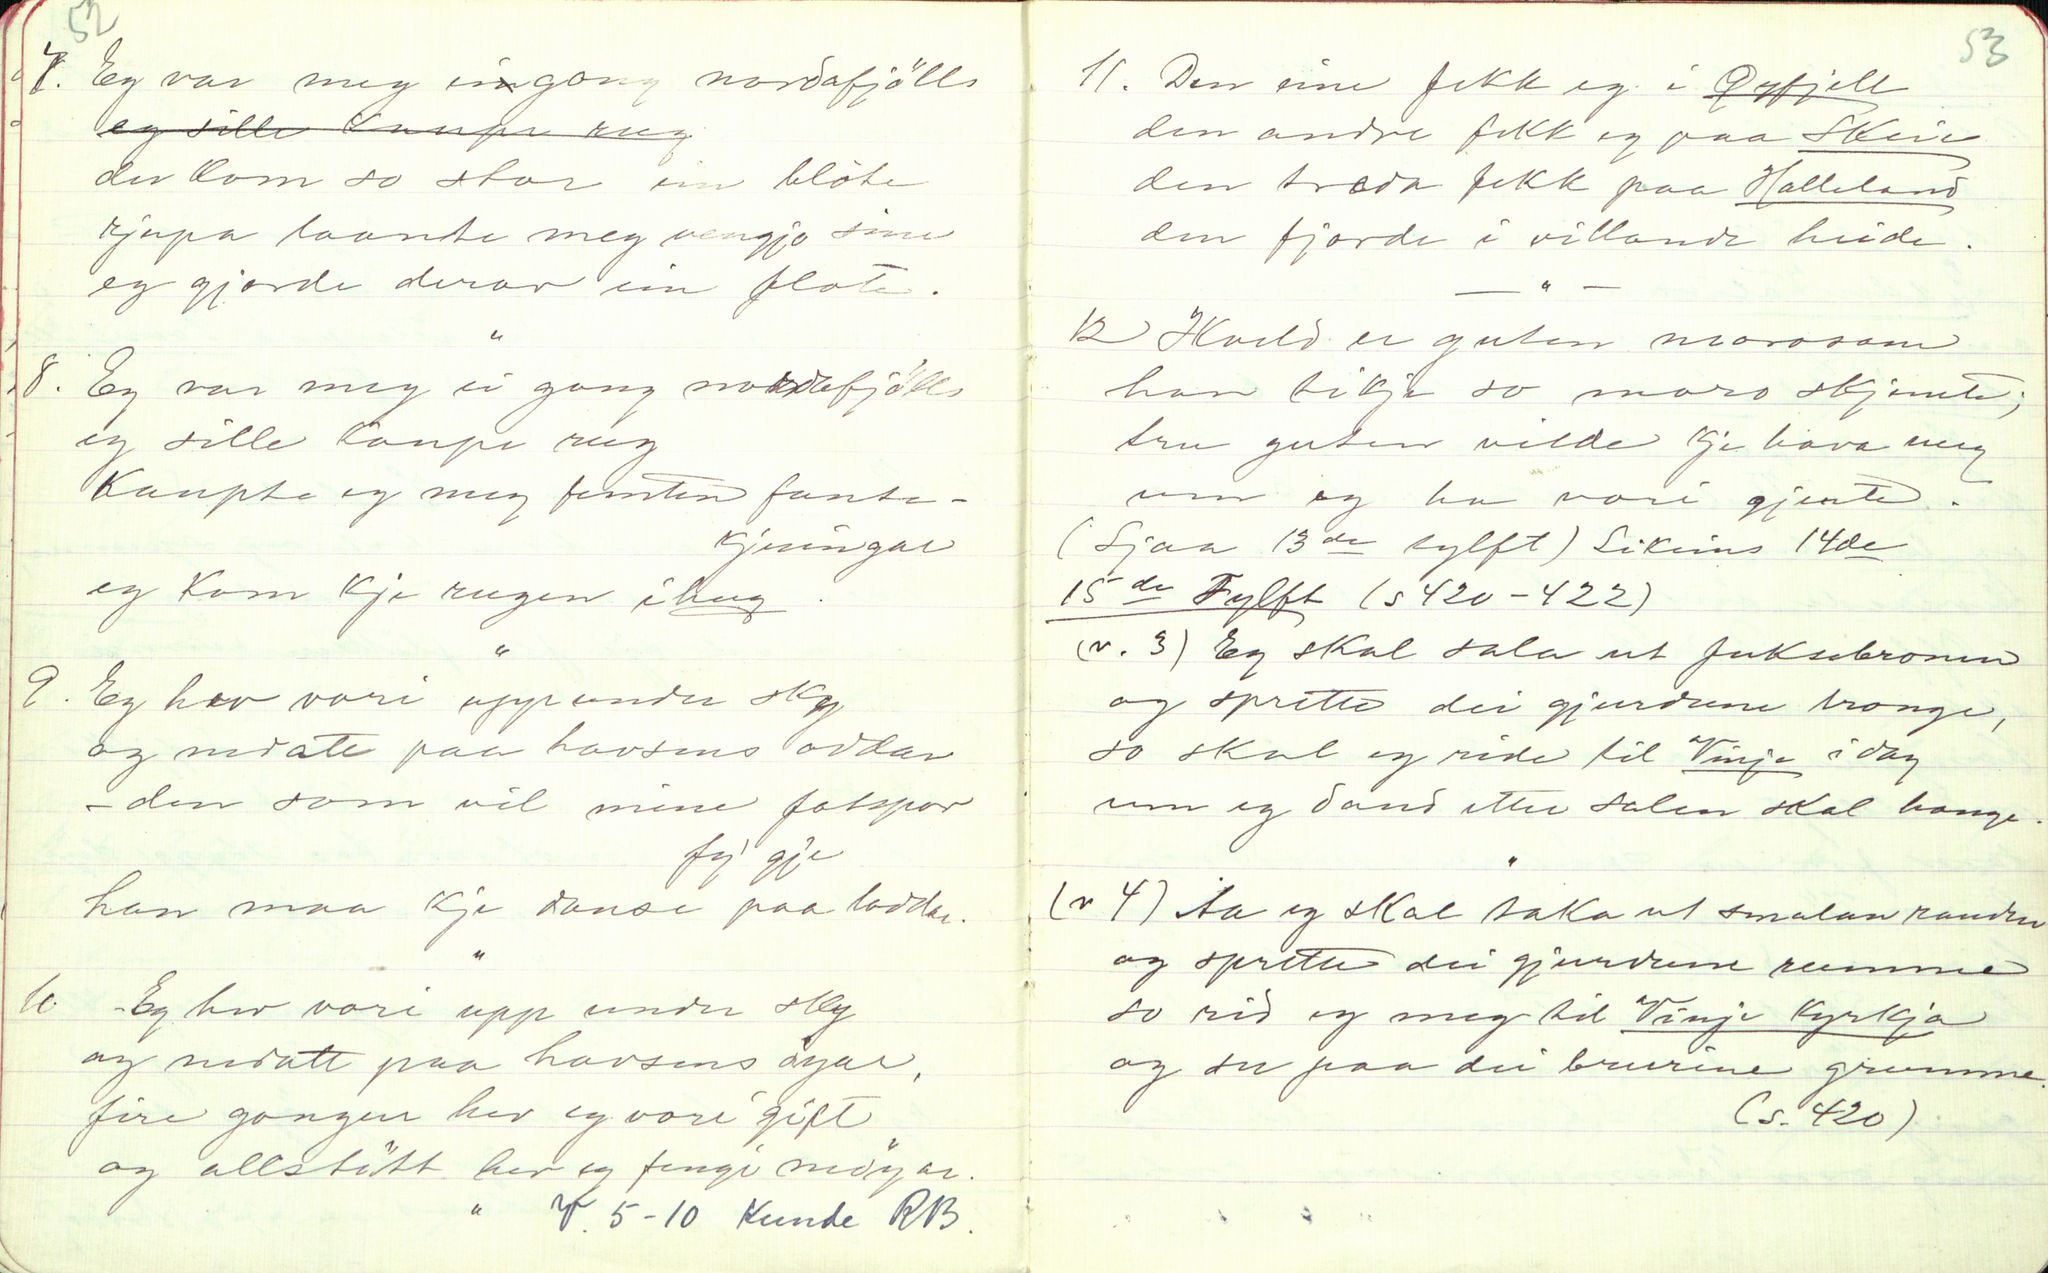 52
7. Eg var meg ein gong nordafjölls
eg sille kaupe rug
der kom so stor ein blöte
rjupa laante meg vengjo sine
eg gjorde derav ein flote.
"
8. Eg var meg ei gong nordafjölls
eg sille kaupe rug
Kaupte eg meg femten fante-
kjeringar
eg kom kje rugen ihug.
"
9. Eg hev vori upp under sky
og nedatte paa havsens oddar
- den som vil mine fotspor
fygje
han maa kje danse paa loddar.
"
10 - Eg hev vori upp under sky
og nedatt paa havsens öyar,
fire gonger hev eg vori gift
og allstött hev eg fengi möyar.
" V. 5-10 Kunde RB.
53
11. Den eine fekk eg i Öyfjell
den andre fekk eg paa Skeie
den treda fekk paa Halleland
den fjorde i villande heide.
— " —
12 Kveld er guten morosam
han tikje so moro skjemte;
tru guten vilde kje hava meg
um eg ha vori gjente.
(Sjaa 13de tylft) Likeins 14de
15de Tylft (s 420-422)
(v. 3) Eg skal sala ut fuksebronen
og sprette dei gjurdune tronge,
so skal eg ride til Vinje idag
um eg daud etter salen skal hange.
"
(v 4) Aa eg skal taka ut smalan rauden
og sprette dei gjurdune rumme
so rid eg meg til Vinje kyrkja
og ser paa dei brurine grumme.
(s. 420)